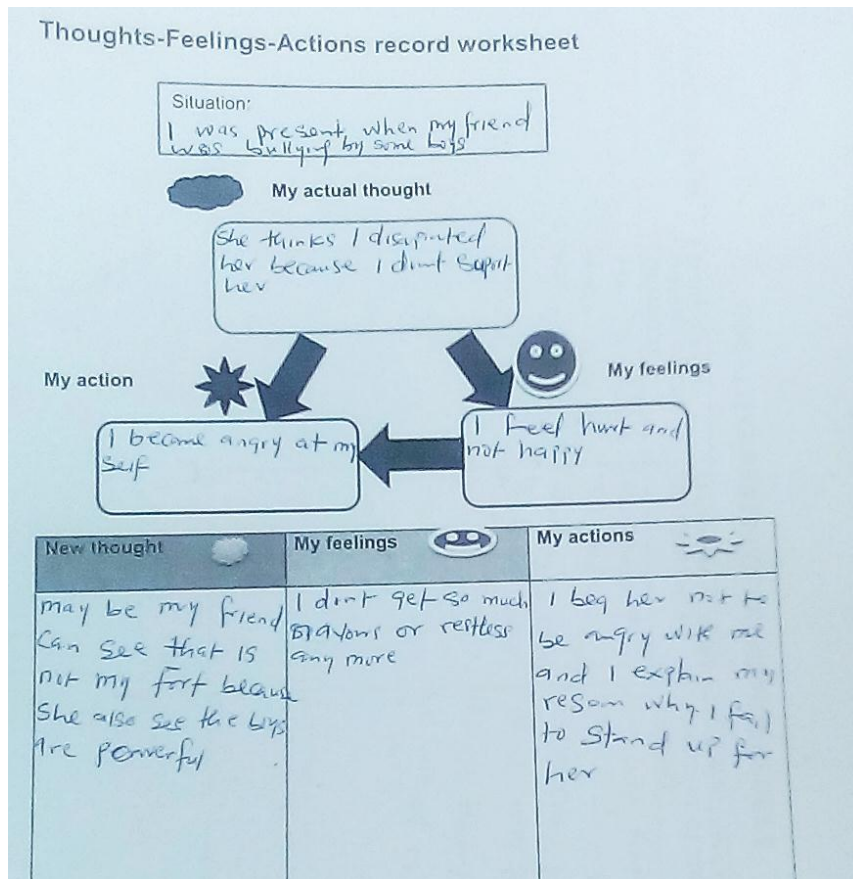 Thoughts-Feelings-Actions record worksheet
Situation:
I was present, when my friend
was bullying by some boys
My actual thought
She thinks I
her because I dont
her
My action
My feelings
I become angry at my
self
I feel hurt and
not happy
New thought
may be my friend
Can see that is
not my fort because
She also see the boys
Are powerful
My feelings
I dont get so much
or restless
any more
My actions
I beg her not to
be angry with me
and I explain my
resom why I fail
to stand up for
her